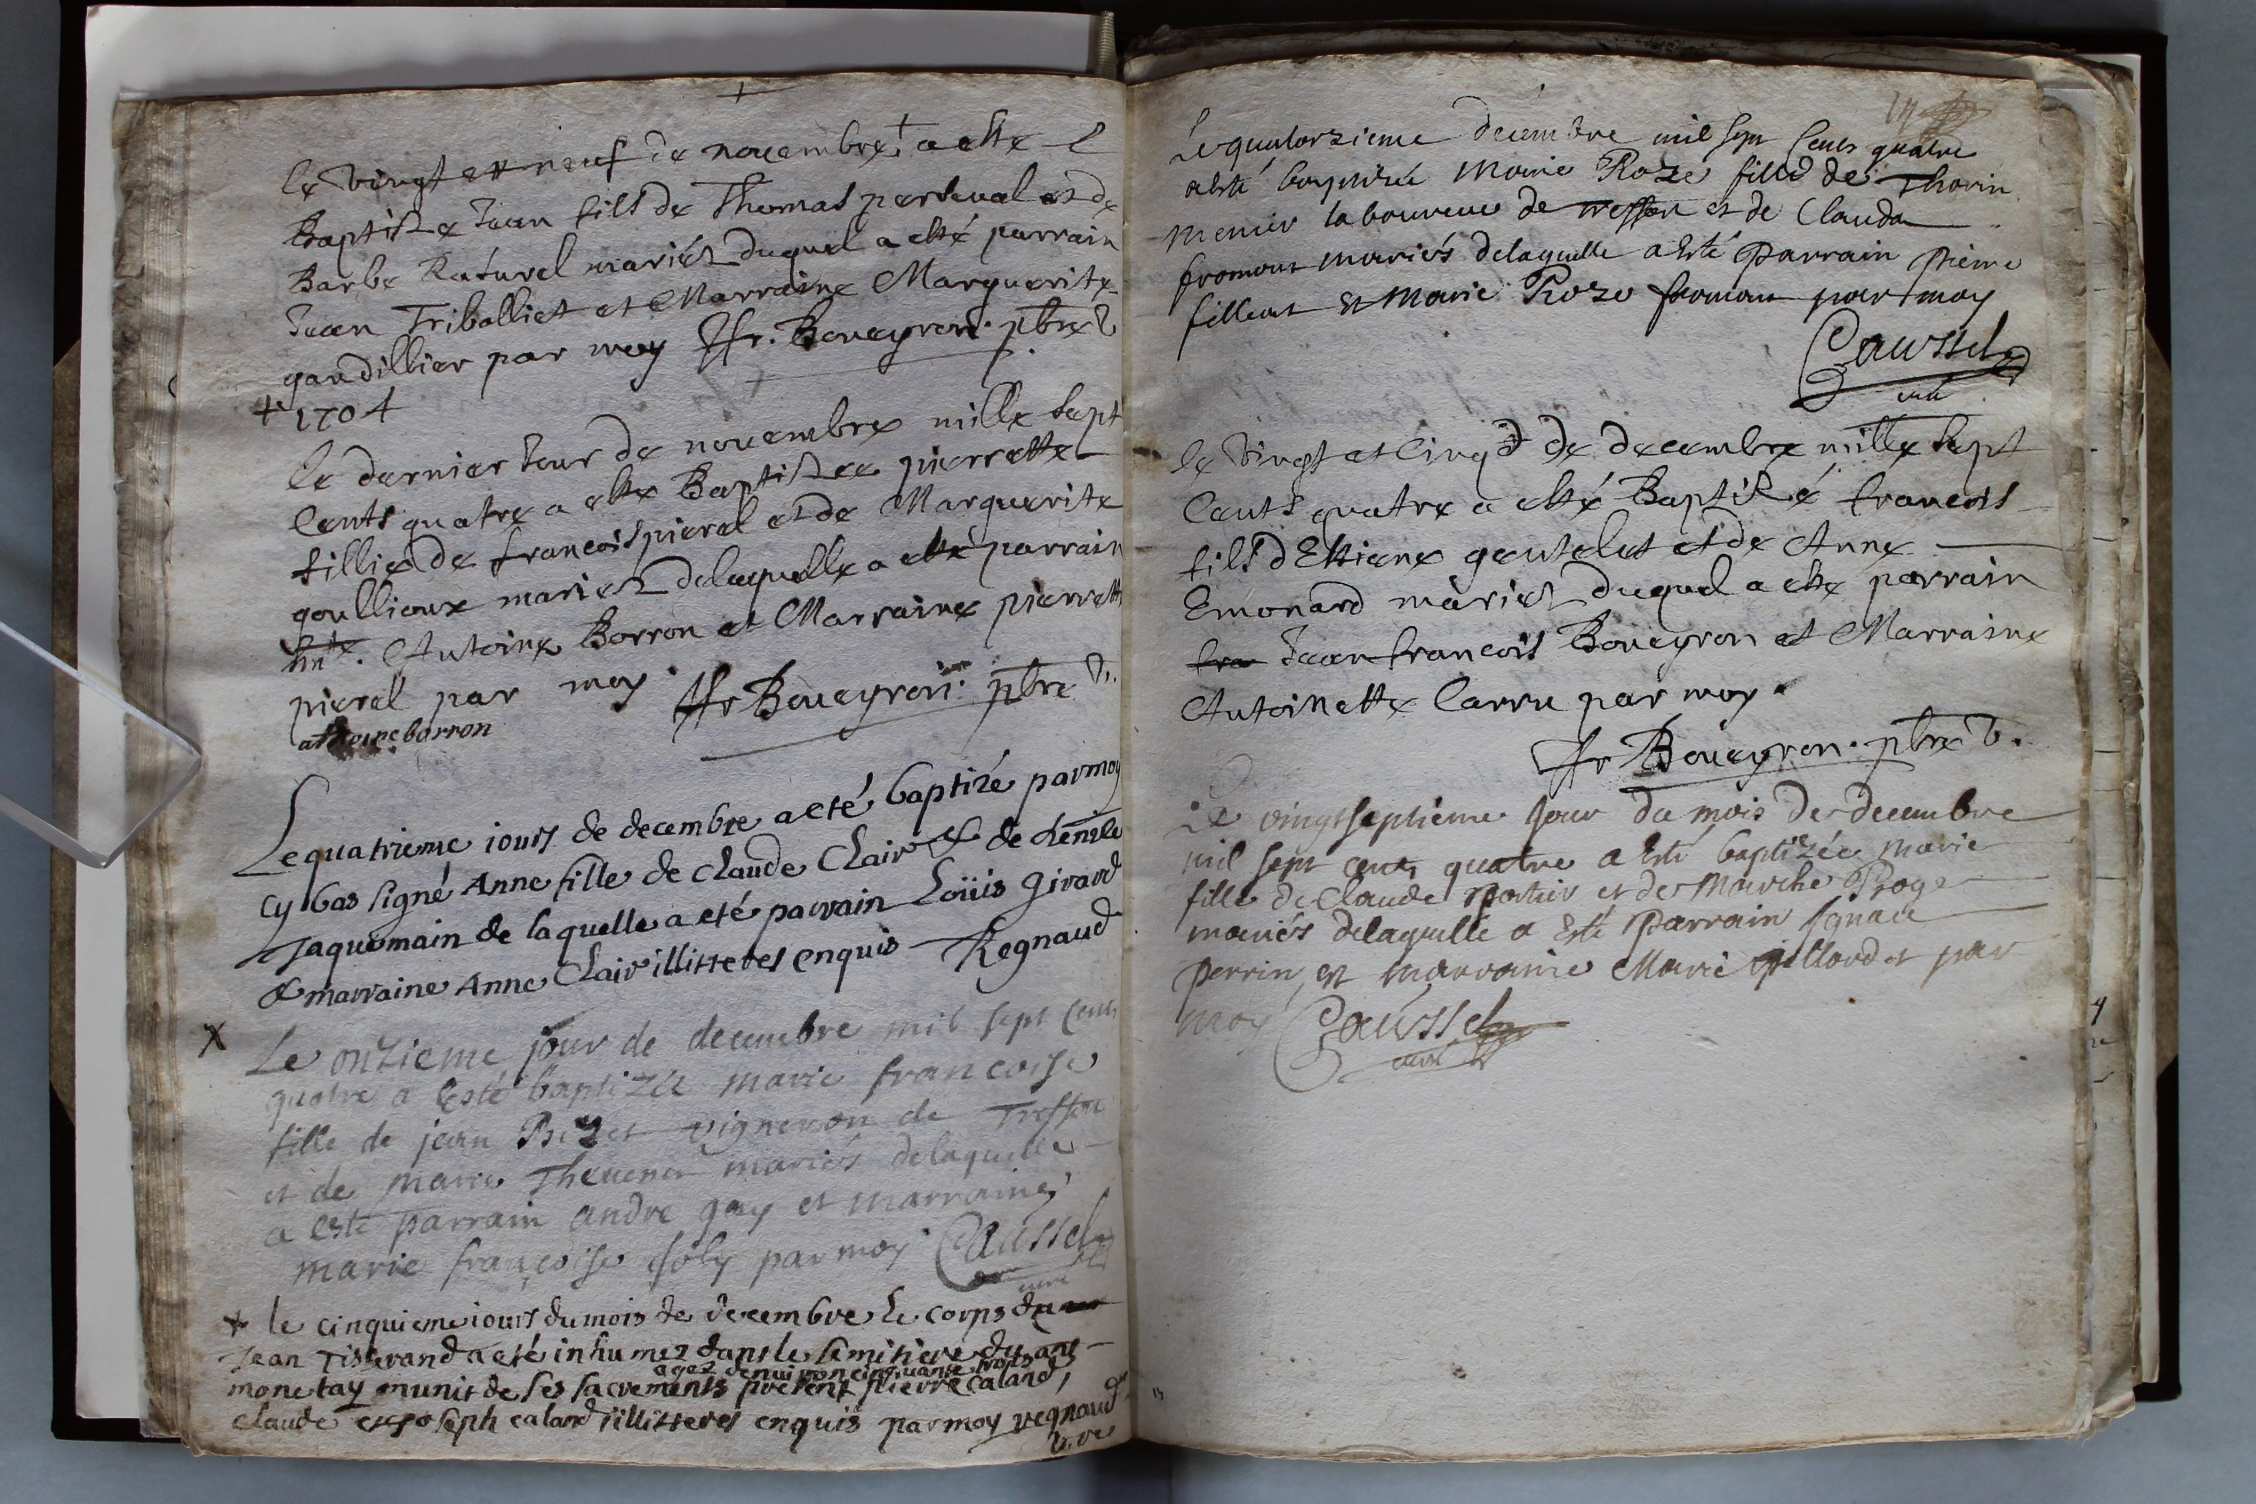 le vingt et neuf de novembre + a este
Baptisee Jean fils de Thomas perseval et de
Barbe Raturel mariez duquel a esté parrain
Jean Triballiet et Marraine Marguerite
gaudillier par moy Fr. Boueyron. pbre v
+ 1704
le dernier Jour de novembre mille sept
Cents quatre a este Baptisee pierrette
fillie de francois pierel et de Marguerite
goullioux mariez delaquelle a esté parrain
hn^te. Antoine Borron et Marraine pierrette
pierel par moy Fr Boueyron. pbre v.
antoine borron
Le quatrieme iours de decembre a eté baptizé par moy
cy bas signé Anne fille de claude Clair & de denile
Jaquemain de laquelle a eté parrain Loüis girard
& marraine Anne Clair illitteres enquis Regnaud
X Le onzieme jour de decembre mil sept Cents
quatre a esté baptizée marie francoise
fille de jean vigneron de Treffou
et de marie Thevenet mariés delaquelle
a esté parrain andre gay et marraine
marie françoise Joly par moy Caussel
curé
+ le cinquieme iours du mois de decembre le corps du
Jean Tisserand a eté inhumez dans le semitiere du
agez denviron cinquante trois ans
monetay munit de ses sacrements present pierre caland,
claude et joseph caland illitteres enquis par moy regnaud
v.re
Le quatorzieme decembre mil sept Cents quatre
a esté baptizée Marie Roze fille de Thorin
Menier laboureur de treffou et de Clauda
fromont mariés delaquelle a esté Parrain Pierre
filleut et Marie Roze fromont par moy
Caussel
curé
le vingt et Cinq de decembre mille sept
Cents quatre a esté Baptisé francois
fils d'Estiene gautelet et de Anne
Emonard mariez duquel a este parrain
fra Jean francois Boueyron et Marraine
Antoinette Carru par moy.
Fr Boueyron. pbre v.
Le vingt septieme Jour du mois de decembre
mil sept cents quatre a esté baptizée marie
fille de Claude Portier et de Marthe Roger
mariés delaquelle a esté Parrain Ignace
perrin, et marraine Marie gillard et par
moy Caussel
curé